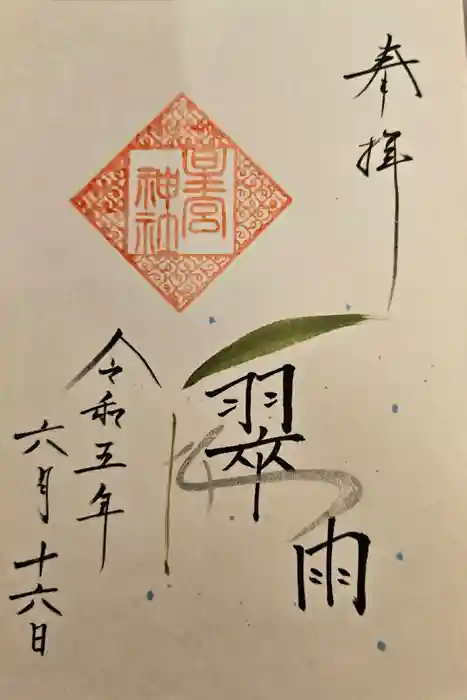 奉拝
宮
神社
翠雨
令和五年
六月十六日